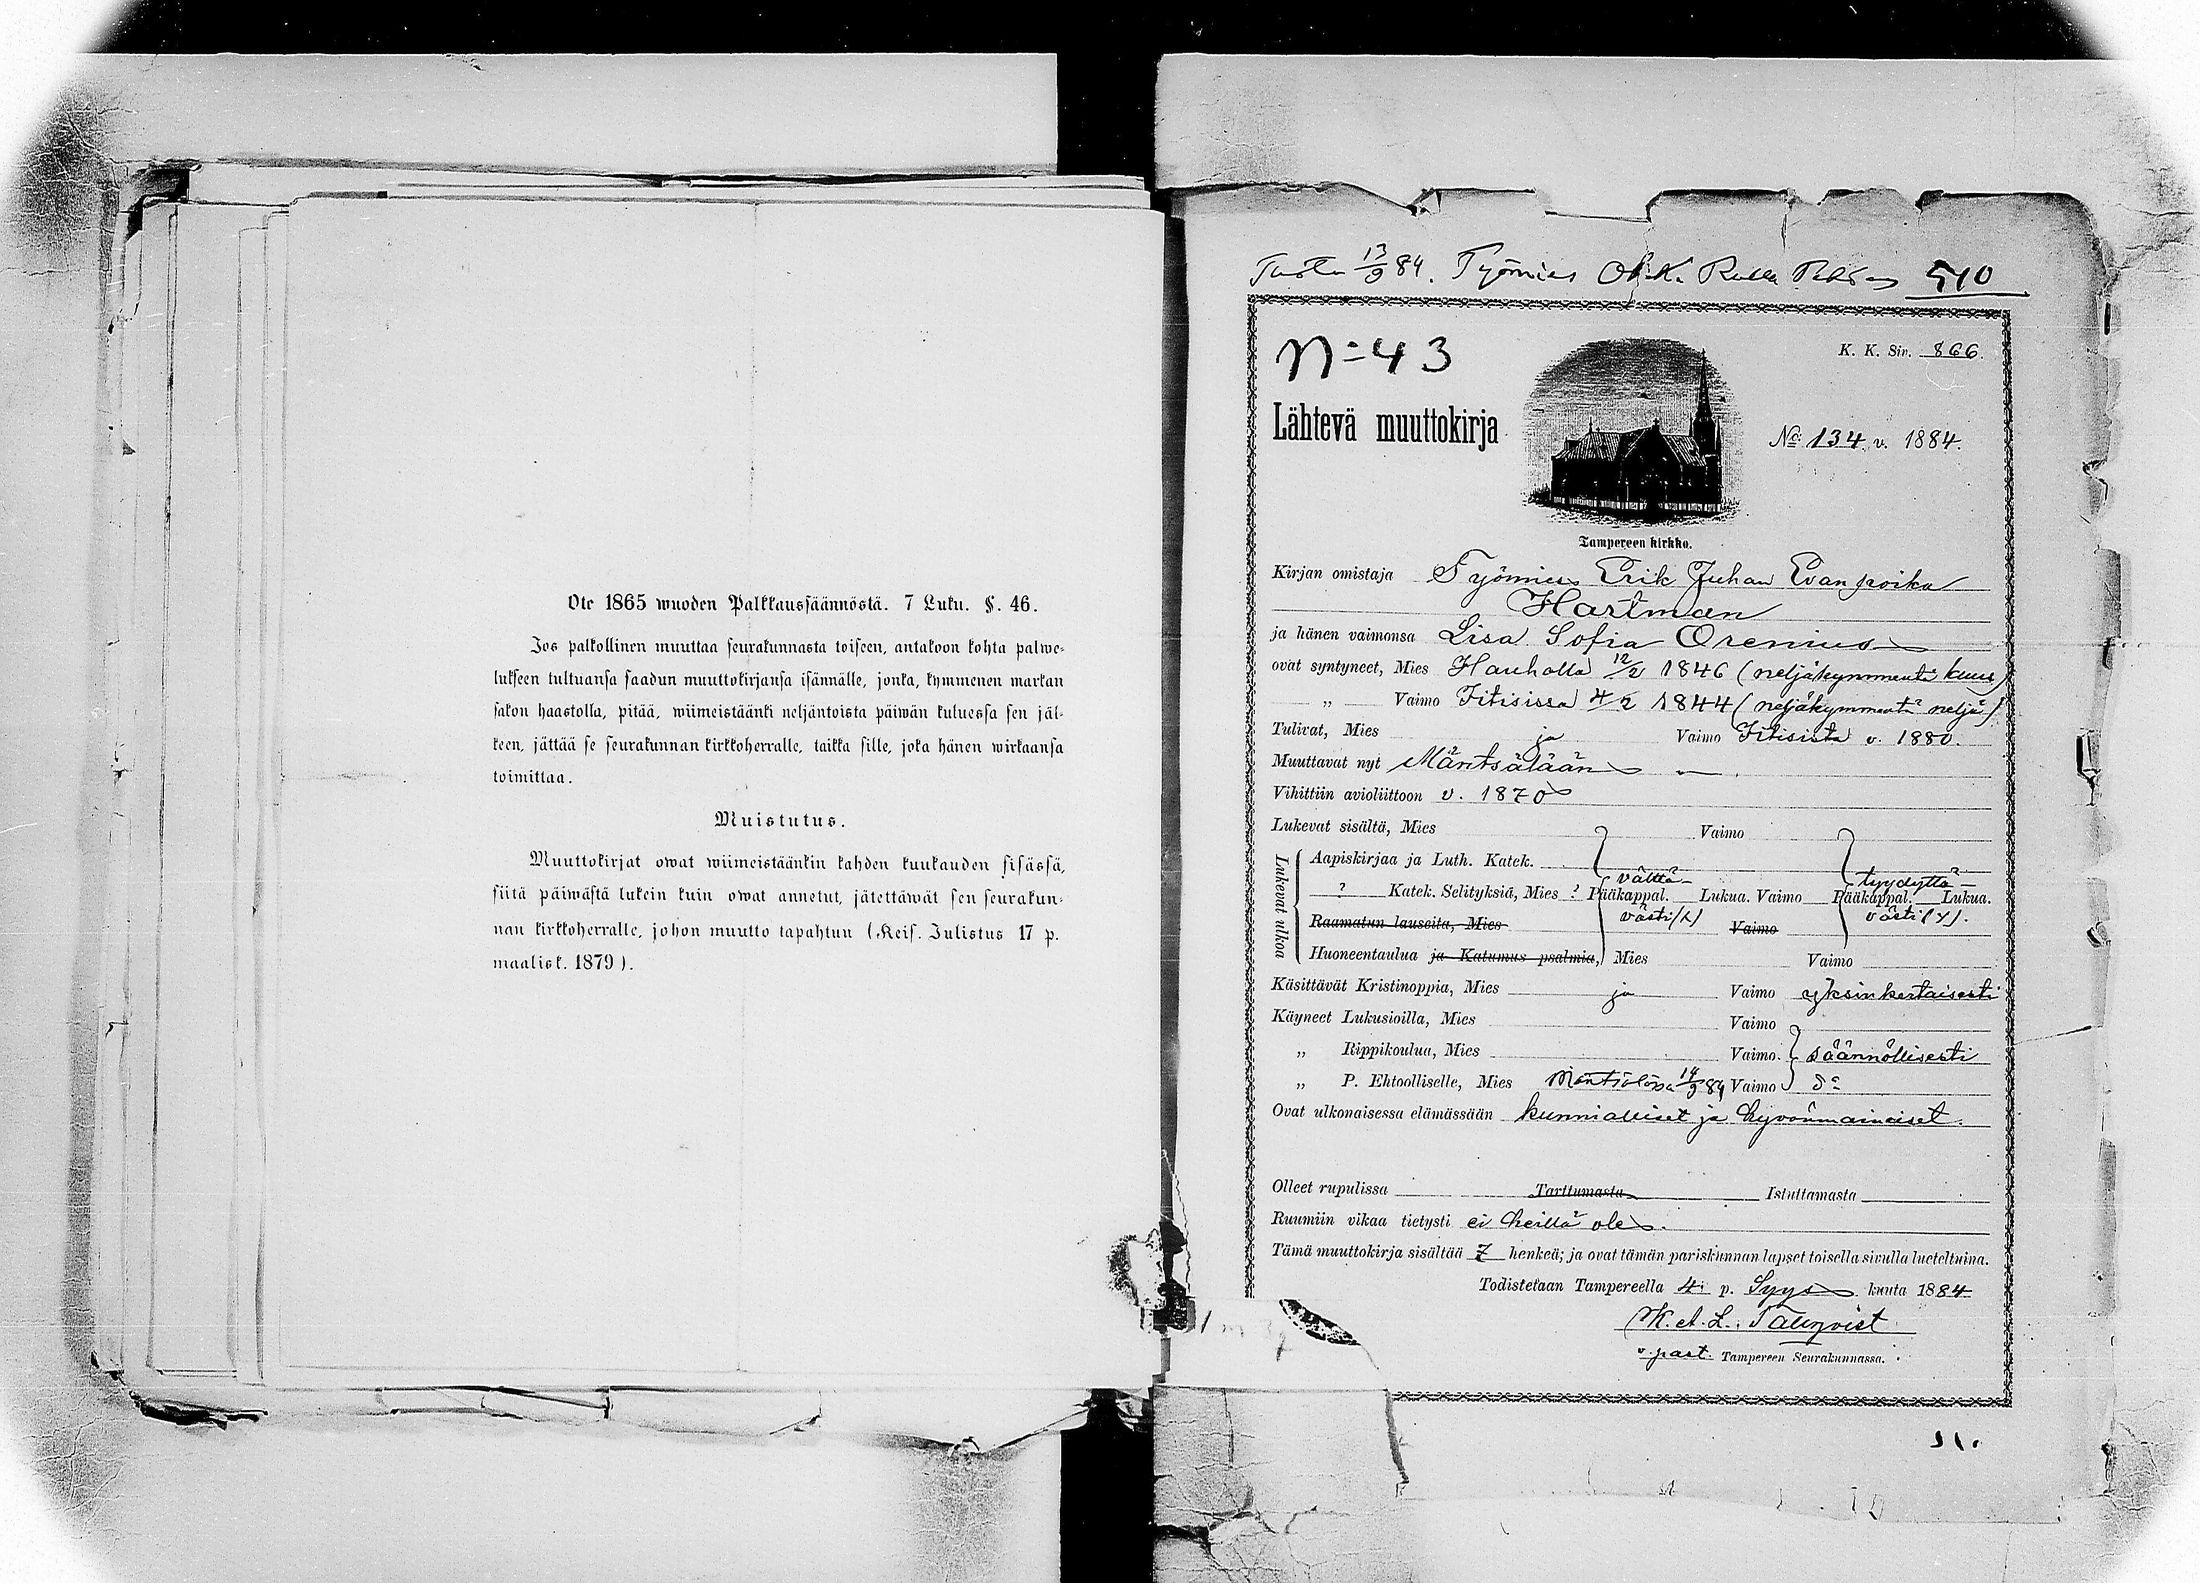 Ote 1865 wuoden Palkkaussäännöstä. 7 Luku. §. 46.
Jos palkollinen muuttaa seurakunnasta toiseen, antakoon kohta palwe-
lukseen tultuansa saadun muuttokirjansa isännälle, jonka, kymmenen markan
sakon haastolla, pitää, wiimeistäänki neljäntoista päiwän kuluessa sen jäl-
keen, jättää se seurakunnan kirkkoherralle, taikka sille, joka hänen wirkaansa
toimittaa.
Muistutus.
Muuttokirjat owat wiimeistäänkin kahden kuukauden sisässä,
siitä päiwästä lukein kuin owat annetut, jätettäwät sen seurakun-
nan kirkkoherralle, johon muutto tapahtuu (Keis. Julistus 17 p.
maalisk. 1879).
13/9 84. Työmies 510
N=43
K. K. Siv. 866.
Lähtevä muuttokirja
No: 134 v. 1884.
Tampereen kirkko.
Kirjan omistaja Työmies Erik Juhan Evanpoika
Hartman
ja hänen vaimonsa Lisa Sofia Orenius
ovat syntyneet, Mies Hauholla 12/2 1846 (neljäkymmentä kuus)
„ Vaimo Iitisissä 4/2 1844 (neljäkymmentä neljä)
Tulivat, Mies ja Vaimo Iitisistä v. 1880.
Muuttavat nyt Mäntsälään
Vihittiin avioliittoon v. 1870
Lukevat sisältä, Mies Vaimo
Lukevat ulkoa
Aapiskirjaa ja Luth. Katek.
? Katek. Selityksiä, Mies ? Pääkappal. Lukua. Vaimo Pääkappal. Lukua.
välttä- tyydyttä-
västi (x) västi (x).
Raamatun lauseita, Mies Vaimo
Huoneentaulua ja Katumus psalmia, Mies Vaimo
Käsittävät Kristinoppia, Mies ja Vaimo yksinkertaisesti
Käyneet Lukusioilla, Mies Vaimo
„ Rippikoulua, Mies Vaimo säännöllisesti
„ P. Ehtoolliselle, Mies Mäntsälässä 14/9 84 Vaimo d:o
Ovat ulkonaisessa elämässään kunnialliset ja hyvänmainiset.
Olleet rupulissa Tarttumasta Istuttamasta
Ruumiin vikaa tietysti ei heillä ole.
Tämä muuttokirja sisältää 7 henkeä; ja ovat tämän pariskunnan lapset toisella sivulla lueteltuina.
Todistetaan Tampereella 4: p. Syys kuuta 1884
K. A. L. Talqvist
v. past. Tampereen Seurakunnassa.